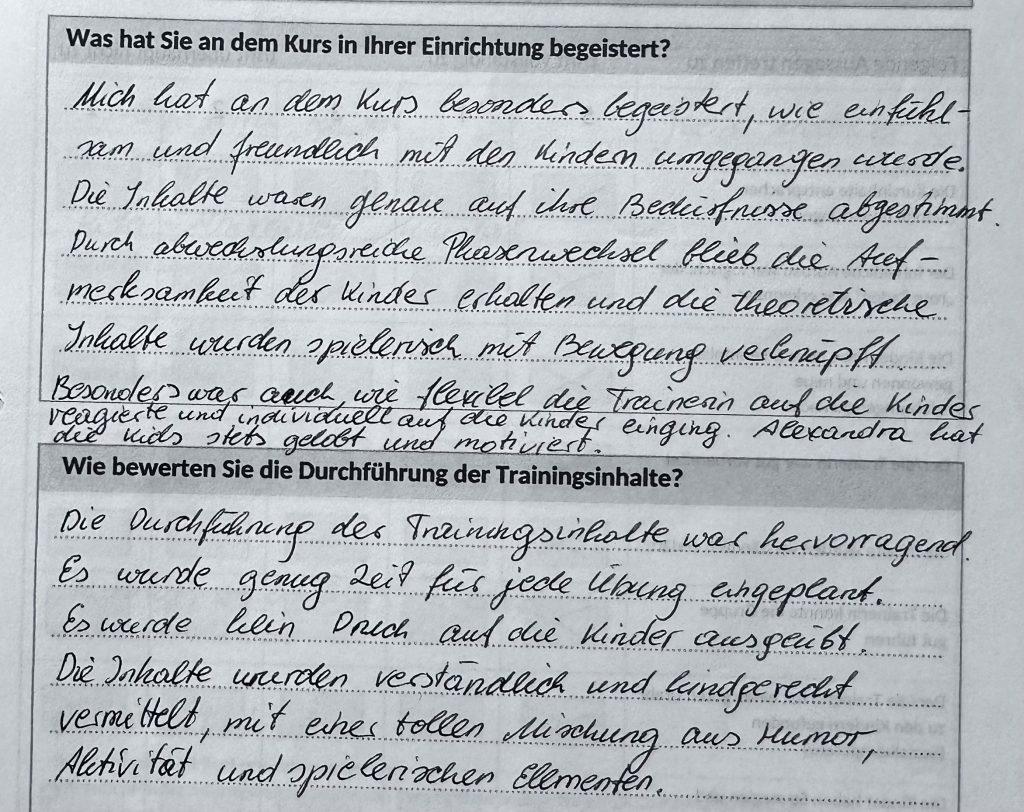 Was hat Sie an dem Kurs in Ihrer Einrichtung begeistert?
Mich hat an dem Kurs besonders begeistert, wie einfühl-
sam und freundlich mit den Kindern umgegangen wurde.
Die Inhalte waren genau auf ihre Bedürfnisse abgestimmt.
Durch abwechslungsreiche Phasenwechsel blieb die Auf-
merksamkeit der Kinder erhalten und die theoretische
Inhalte wurden spielerisch mit Bewegung verknüpft.
Besonders war auch, wie flexibel die Trainerin auf die Kinder
reagierte und individuell auf die Kinder einging. Alexandra hat
die Kids stets gelobt und motiviert.
Wie bewerten Sie die Durchführung der Trainingsinhalte?
Die Durchführung der Trainingsinhalte war hervorragend.
Es wurde genug Zeit für jede Übung eingeplant.
Es wurde kein Druck auf die Kinder ausgeübt.
Die Inhalte wurden verständlich und kindgerecht
vermittelt, mit einer tollen Mischung aus Humor,
Aktivität und spielerischen Elementen.